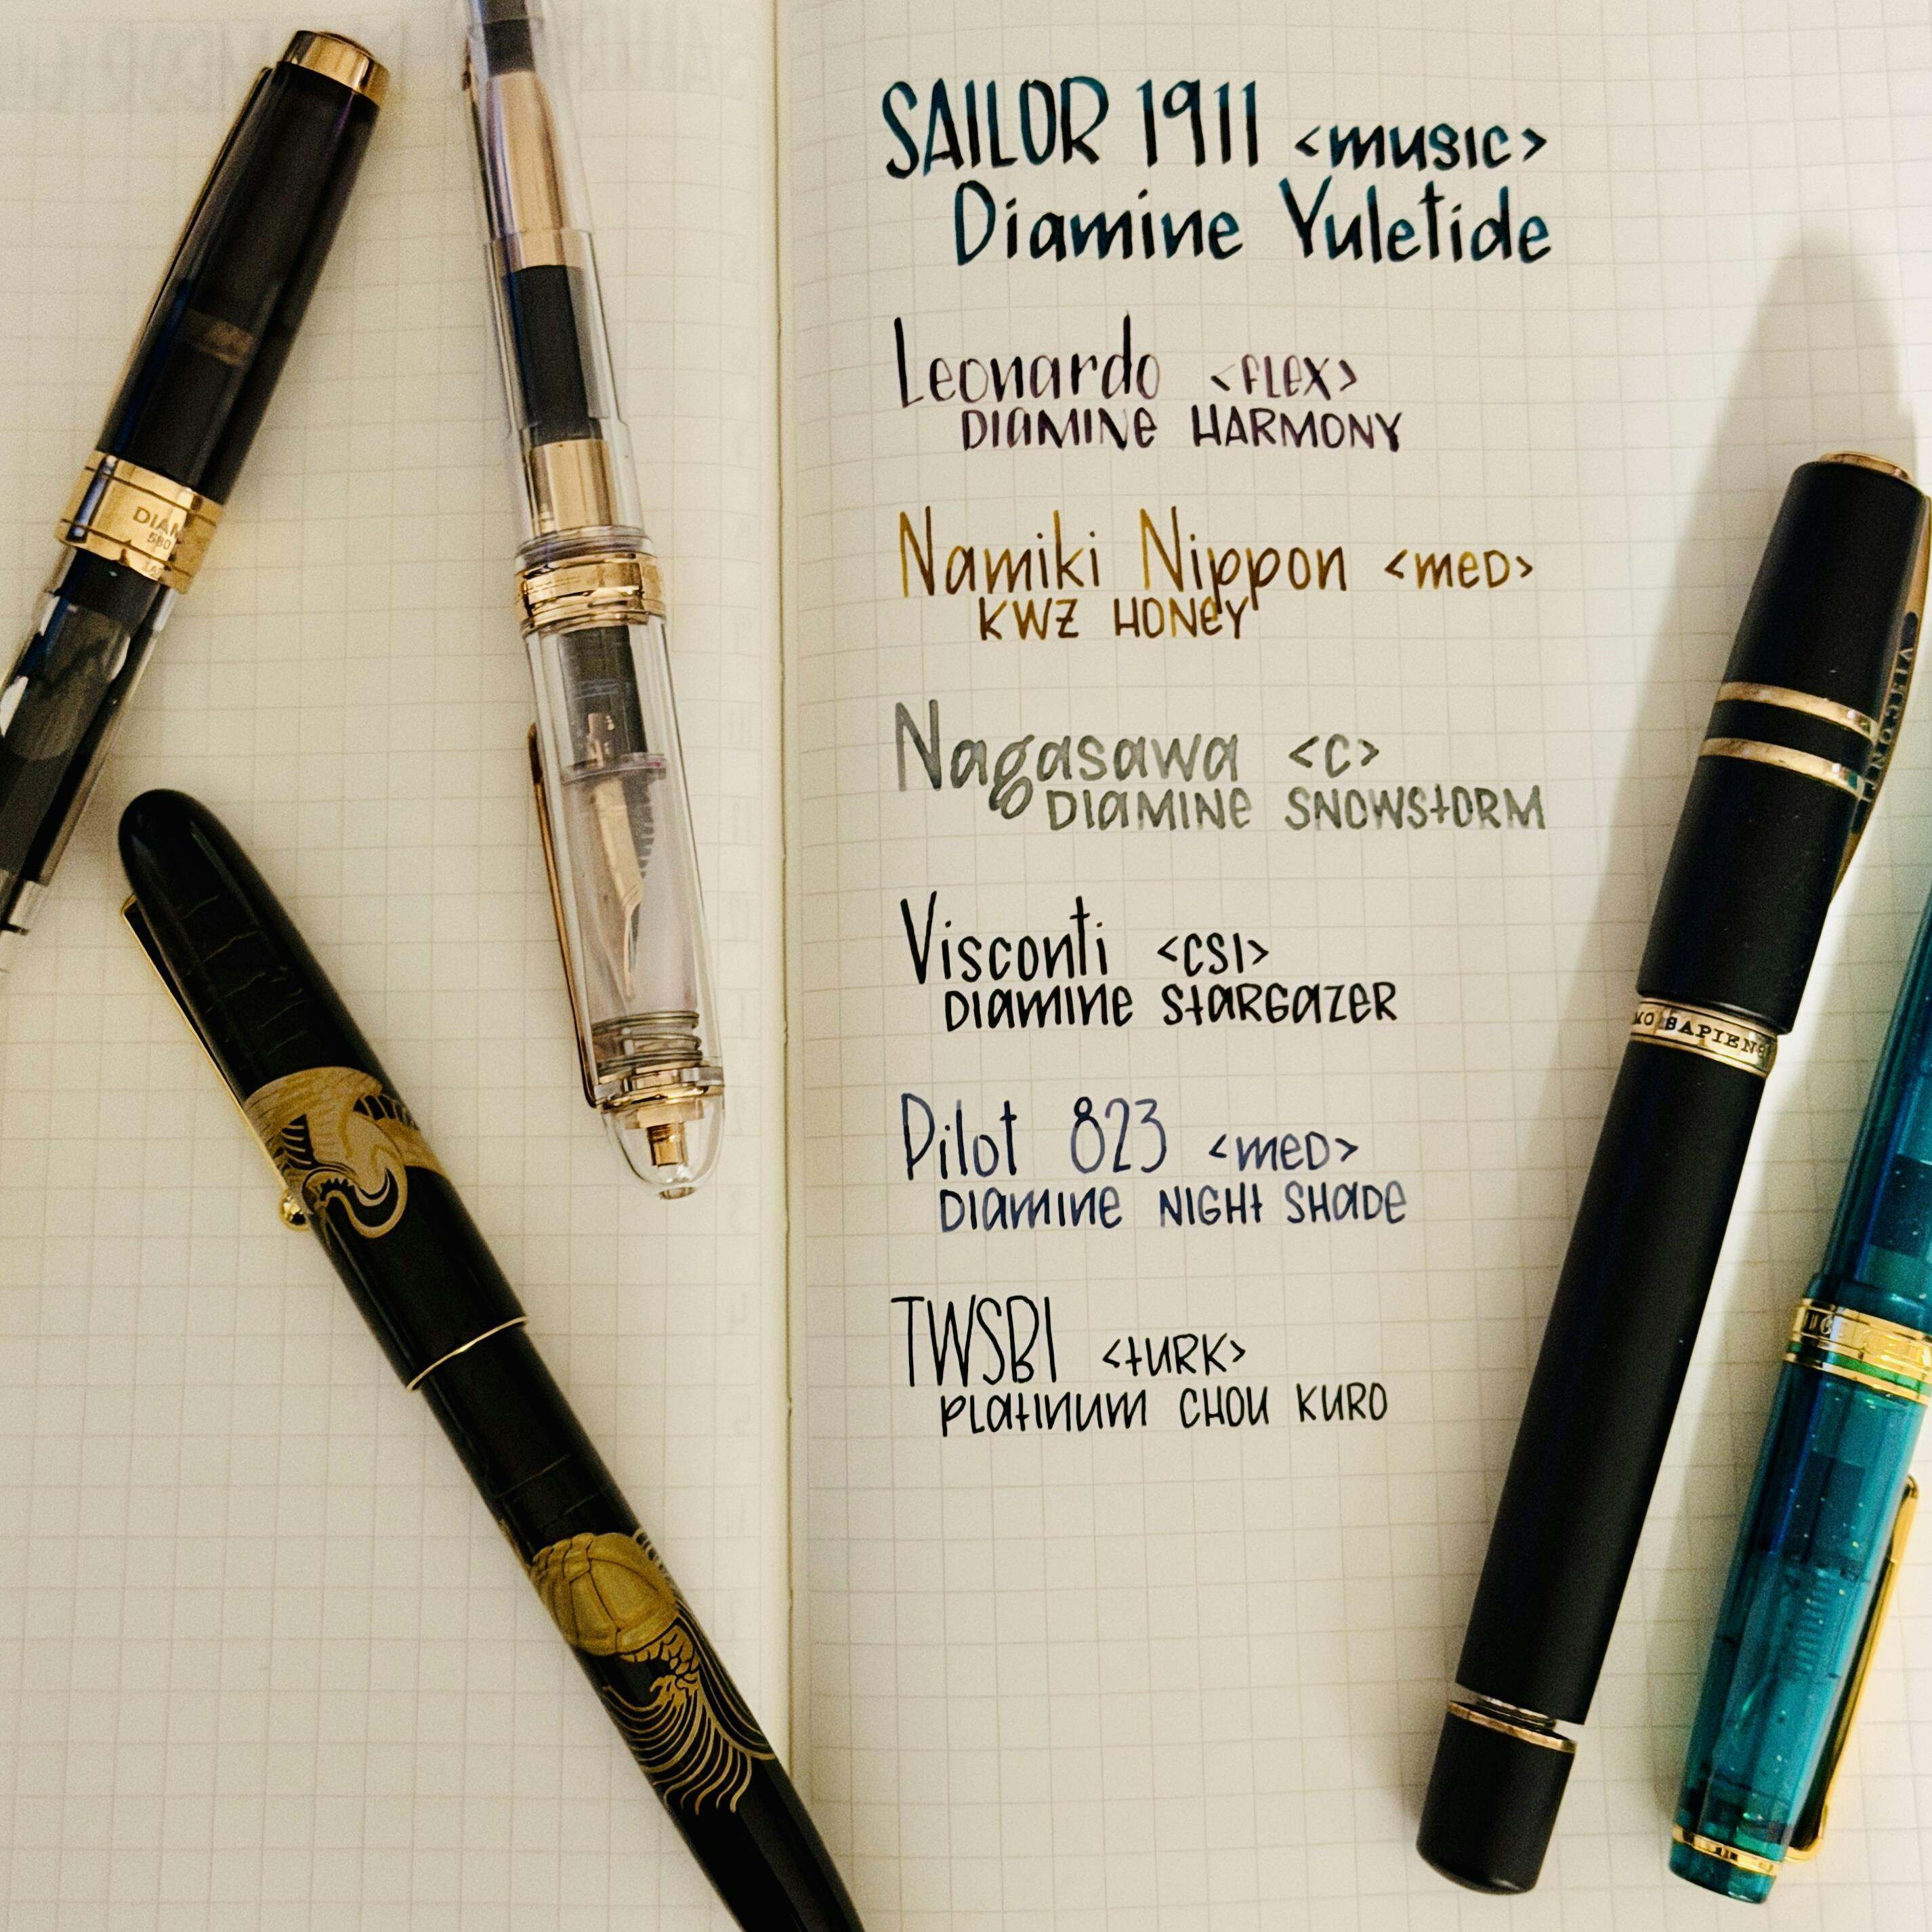 SAILOR 1911 <music>
Diamine Yuletide
Leonardo <FLEX>
DIAMINE HARMONY
Namiki Nippon <MED>
KWZ HONEY
Nagasawa <C>
DIAMINE SNOWSTORM
Visconti <CSI>
DIAMINE STARGAZER
Pilot 823 <MED>
DIAMINE NIGHT SHADE
TWSBI <TURK>
PLATINUM CHOU KURO
DIAM
580
VISCONTI
MO SAPIENS